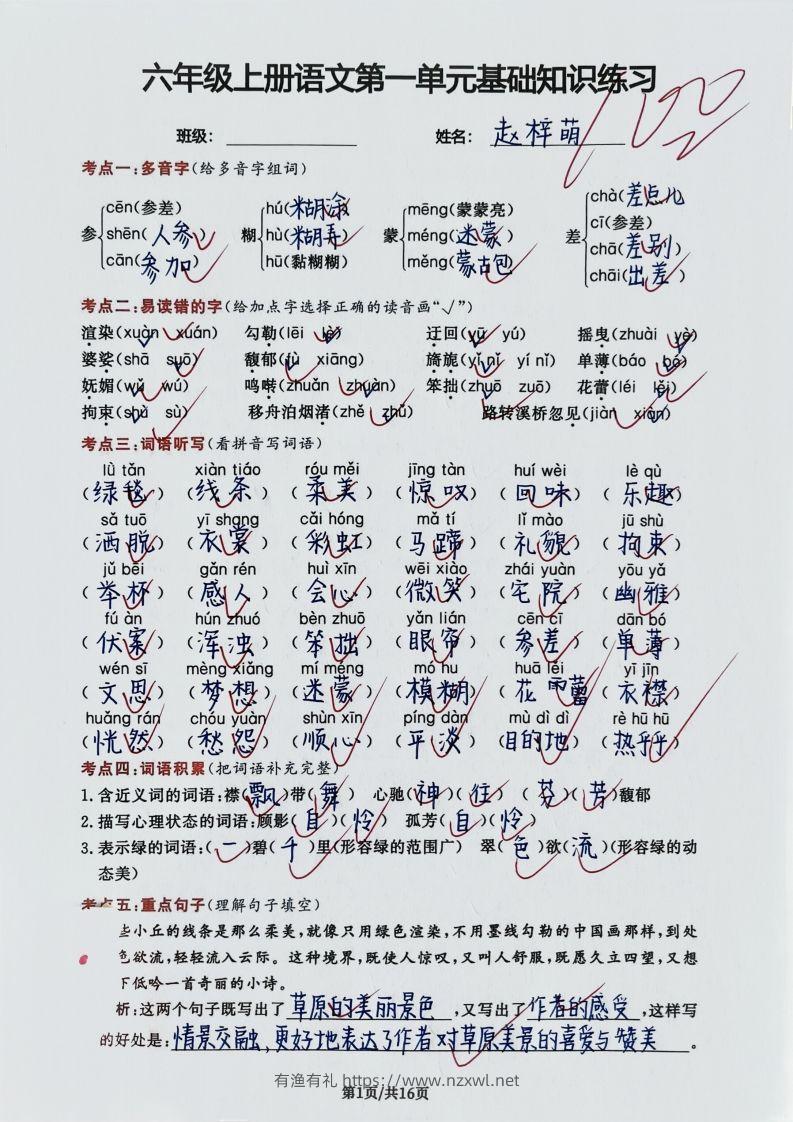 六年级上册语文第一单元基础知识练习
100
班级: 姓名: 赵梓萌
考点一:多音字(给多音字组词)
参 cēn(参差) shēn(人参) cān(参加)
糊 hú(糊涂) hù(糊弄) hū(黏糊糊)
蒙 mēng(蒙蒙亮) méng(迷蒙) měng(蒙古包)
差 chà(差点儿) cī(参差) chā(差别) chāi(出差)
考点二:易读错的字(给加点字选择正确的读音画“√”)
渲染(xuàn xuán) 勾勒(lēi lè) 迂回(yū yú) 摇曳(zhuài yè)
婆娑(shā suō) 馥郁(fù xiāng) 旖旎(yǐ nǐ yí nǐ) 单薄(báo bó)
妩媚(wǔ wú) 鸣啭(zhuǎn zhuàn) 笨拙(zhuō zuō) 花蕾(léi lěi)
拘束(shù sù) 移舟泊烟渚(zhě zhǔ) 路转溪桥忽见(jiàn xiàn)
考点三:词语听写(看拼音写词语)
lǜ tǎn xiàn tiáo róu měi jīng tàn huí wèi lè qù
(绿毯) (线条) (柔美) (惊叹) (回味) (乐趣)
sǎ tuō yī shang cǎi hóng mǎ tí lǐ mào jū shù
(洒脱) (衣裳) (彩虹) (马蹄) (礼貌) (拘束)
jǔ bēi gǎn rén huì xīn wēi xiào zhái yuàn yōu yǎ
(举杯) (感人) (会心) (微笑) (宅院) (幽雅)
fú àn hún zhuó bèn zhuō yǎn lián cēn cī dān bó
(伏案) (浑浊) (笨拙) (眼帘) (参差) (单薄)
wén sī mèng xiǎng mí méng mó hu huā lěi yī jīn
(文思) (梦想) (迷蒙) (模糊) (花蕾) (衣襟)
huǎng rán chóu yuàn shùn xīn píng dàn mù dì dì rè hū hū
(恍然) (愁怨) (顺心) (平淡) (目的地) (热乎乎)
考点四:词语积累(把词语补充完整)
1. 含近义词的词语:襟(飘)带(舞) 心驰(神)(往) (芬)(芳)馥郁
2. 描写心理状态的词语:顾影(自)(怜) 孤芳(自)(怜)
3. 表示绿的词语:(一)碧(千)里(形容绿的范围广) 翠(色)欲(流)(形容绿的动
态美)
考点五:重点句子(理解句子填空)
些小丘的线条是那么柔美,就像只用绿色渲染,不用墨线勾勒的中国画那样,到处
色欲流,轻轻流入云际。这种境界,既使人惊叹,又叫人舒服,既愿久立四望,又想
下低吟一首奇丽的小诗。
析:这两个句子既写出了草原的美丽景色,又写出了作者的感受,这样写
的好处是:情景交融,更好地表达了作者对草原美景的喜爱与赞美。
有渔有礼 https://www.nzxwl.net
第1页/共16页